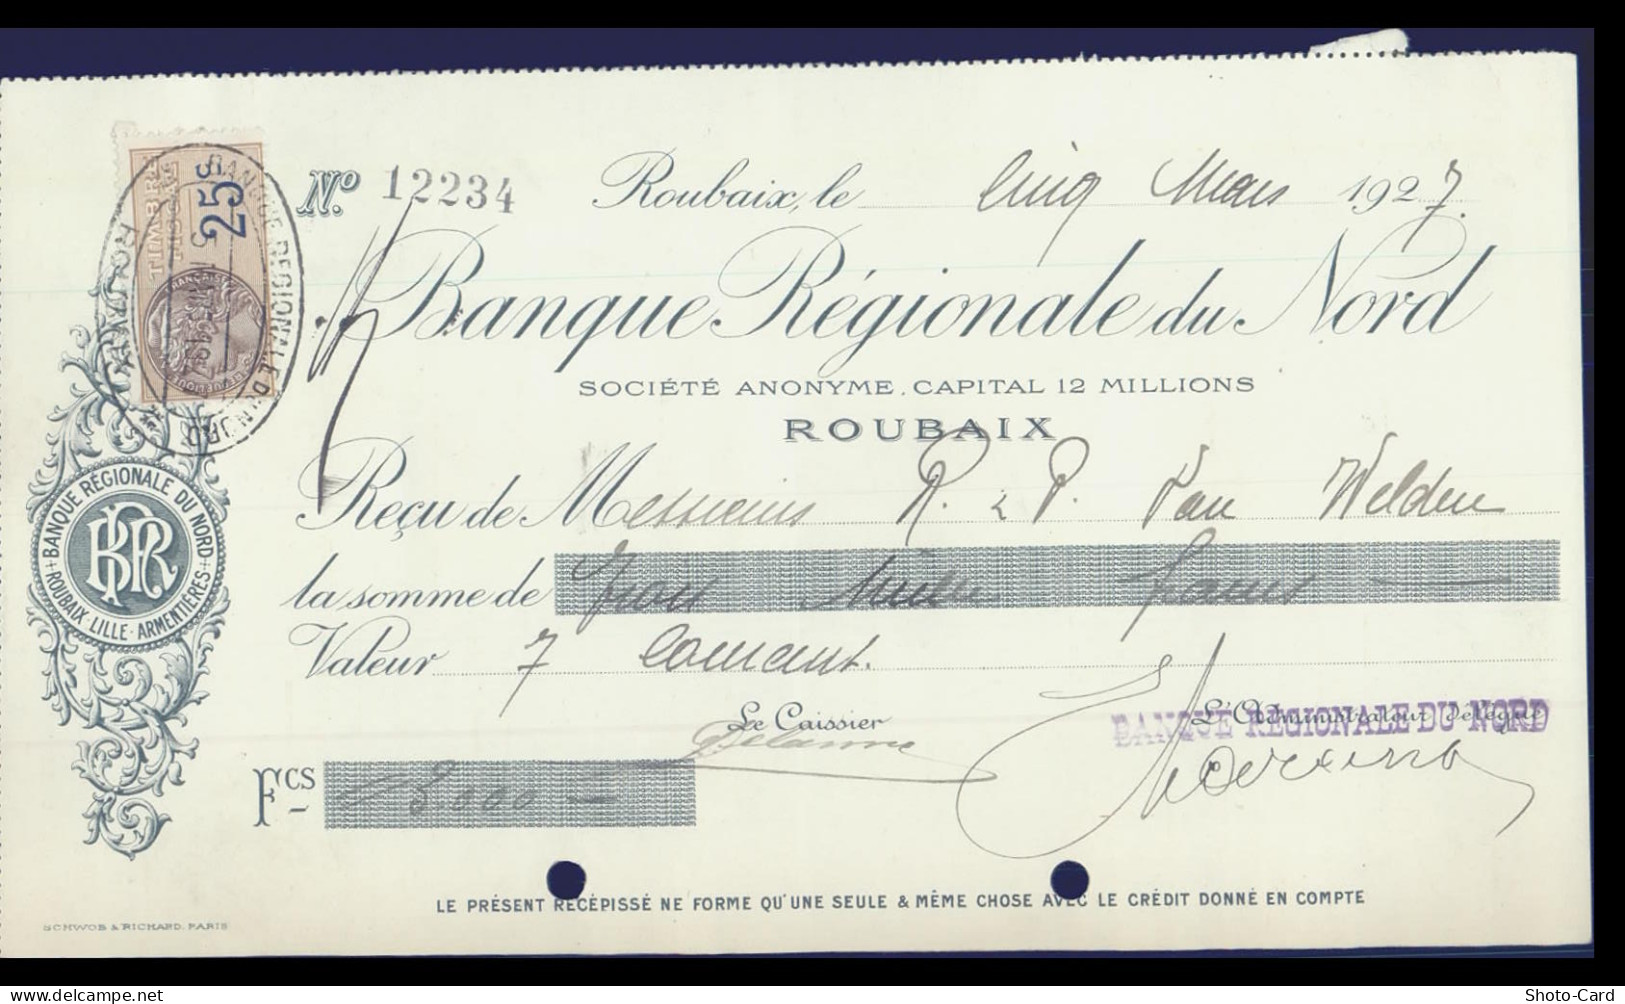 TIMBRE FISCAL
25c
BANQUE REGIONALE DU NORD
ROUBAIX
No. 12234
Roubaix, le cinq Mars 1927.
Banque Régionale du Nord
SOCIÉTÉ ANONYME. CAPITAL 12 MILLIONS
ROUBAIX
Reçu de Messieurs R. & P. Van Welden
la somme de Trois Mille francs
Valeur 7 Courant.
Le Caissier
L'Administrateur Délégué
BANQUE RÉGIONALE DU NORD
Fcs 3.000
BANQUE RÉGIONALE DU NORD
ROUBAIX · LILLE · ARMENTIÈRES
BRN
LE PRÉSENT RÉCÉPISSÉ NE FORME QU'UNE SEULE & MÊME CHOSE AVEC LE CRÉDIT DONNÉ EN COMPTE
SCHWOB & RICHARD. PARIS
Shoto-Card